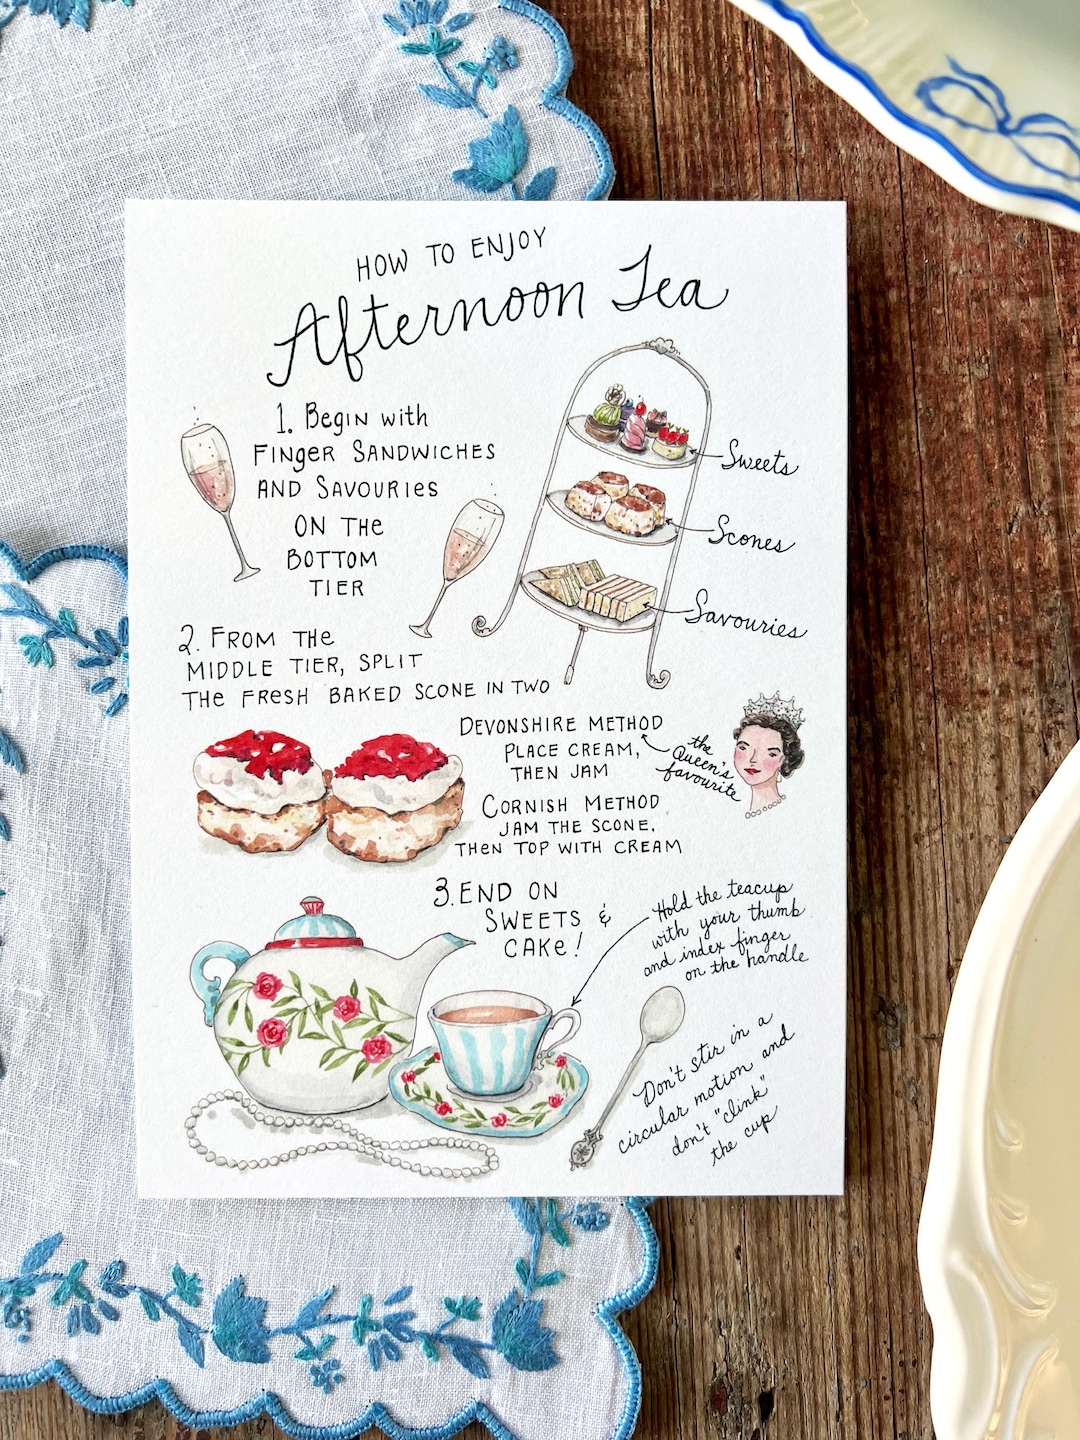 HOW TO ENJOY
Afternoon Tea
1. Begin with
Finger Sandwiches
and Savouries
on the
Bottom
Tier
Sweets
Scones
Savouries
2. From the
middle tier, split
the fresh baked scone in two
Devonshire Method
Place cream,
then jam
the
Queen's
favourite
Cornish Method
Jam the scone,
then top with cream
3. End on
Sweets &
Cake!
Hold the teacup
with your thumb
and index finger
on the handle
Don't stir in a
circular motion and
don't "clink"
the cup